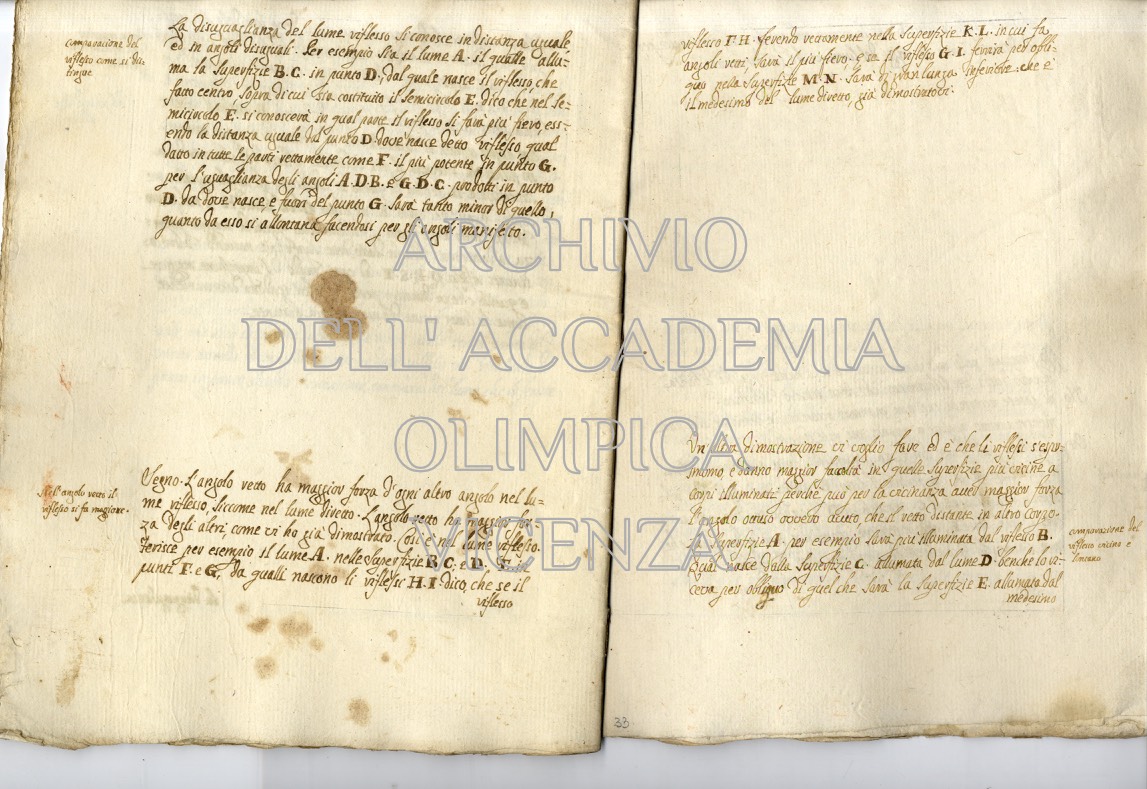 comparazione del
riflesso come si dis
tingue
La disuguaglianza del lume riflesso si conosce in distanza uguale
ed in angoli disuguali. Per esempio sia il lume A. il qualle allu-
ma la superfizie B.C. in punto D., dal quale nasce il riflesso, che
fatto centro, sopra di cui sia costituito il semicircolo E. dico che nel se-
micircolo E. si conoscerà in qual parte il riflesso si farà più fiero, ess-
endo la distanza uguale dal punto D. dove nasce detto riflesso, qual
dato in tutte le parti rettamente come F. il più potente in punto G.
per l'uguaglianza degli angoli A.D.B. e G.D.C. prodotti in punto
D. da dove nasce e fuori del punto G. sarà tanto minor di quello,
quanto da esso si allontana facendosi per gli angoli manifesto.
Nell'angolo retto il
riflesso si fa maggiore.
Segno. L'angolo retto ha maggior forza d'ogni altro angolo nel lu-
me riflesso, siccome nel lume diretto. L'angolo retto ha maggior for-
za degli altri, come vi ho già dimostrato. Così è nel lume riflesso.
ferisce per esempio il lume A. nelle superfizie B.C. e D.E. in
punti F. e G., da qualli nascono li riflessi H.I. dico, che se il
riflesso
riflesso F.H. ferendo rettamente nella superfizie K.L. in cui fa
angoli retti, sarà il più fiero, e se il riflesso G.I. ferirà per obbli-
quo nella superfizie M.N. sarà di gran lunga inferiore: che è
il medesimo del lume diretto, già dimostratovi.
Un'altra dimostrazione vi voglio fare ed è che li riflessi s'espri-
mono, e danno maggior facoltà in quelle superfizie più vicine a
corpi illuminati perchè può per la vicinanza aver maggior forza
l'angolo ottuso ovvero acuto, che il retto distante in altro corpo.
La superfizie A. per esempio sarà più illuminata dal riflesso B.
qual nasce dalla superfizie C. allumata dal lume D. benchè lo ri-
ceva per obbliquo di quel che sarà la superfizie E. allumata dal
medesimo
comparazione del
riflesso vicino e
lontano
33
ARCHIVIO
DELL' ACCADEMIA
OLIMPICA
VICENZA